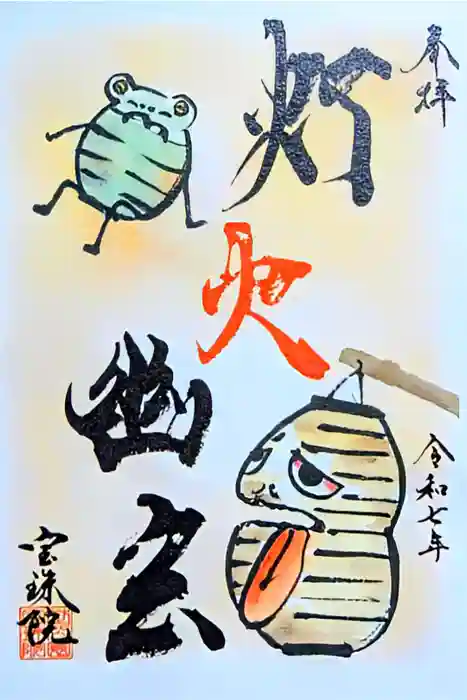 奉拝
灯
火
幽玄
令和七年
宝珠院